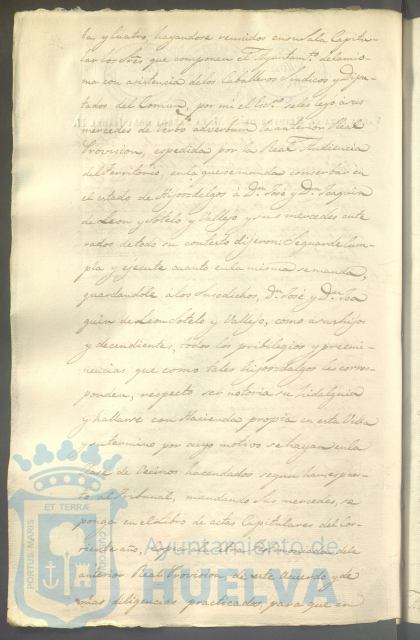 ta y cuatro, hayandose reunidos en su Sala Capitu-
lar los Sres. que componen el Ayuntamto. de la mis-
ma con asistencia de los Caballeros Sindicos y Dipu-
tados del Comun, por mi el Esno. se les leyó a sus
mercedes de Verbo adverbum la anterior Real
Provision, espedida por la Real Audiencia
del Territorio, en la que se manda conservar en
el estado de Hijosdalgos á Dn. José y Dn. Joaquin
de Leon y Sotelo y Vallejo y sus mercedes ente
rados de todo su contesto dijeron: Se guarde cum-
pla y ejecute cuanto en la misma se manda,
guardandole a los Susodichos, Dn. José y Dn. Joa
quin de Leon Sotelo y Vallejo, como a sus hijos
y decendientes, todos los privilegios y preemi-
nencias que como tales hijosdalgos les corres-
ponden, respecto ser notoria su hidalguia
y hallarse con Hacienda propia en esta Villa
y su termino por cuyo motivo se hayan en la
clase de Vecinos hacendados segun han espues-
to al Tribunal, mandando Sus mercedes, se
ponga en el Libro de actas Capitulares del cor-
riente año, copia de la
anterior Real Provision, de este Acuerdo y de-
mas diligencias practicadas, para que en
PORTUS MARIS ET TERRAE CUSTODIA
Ayuntamiento de
HUELVA